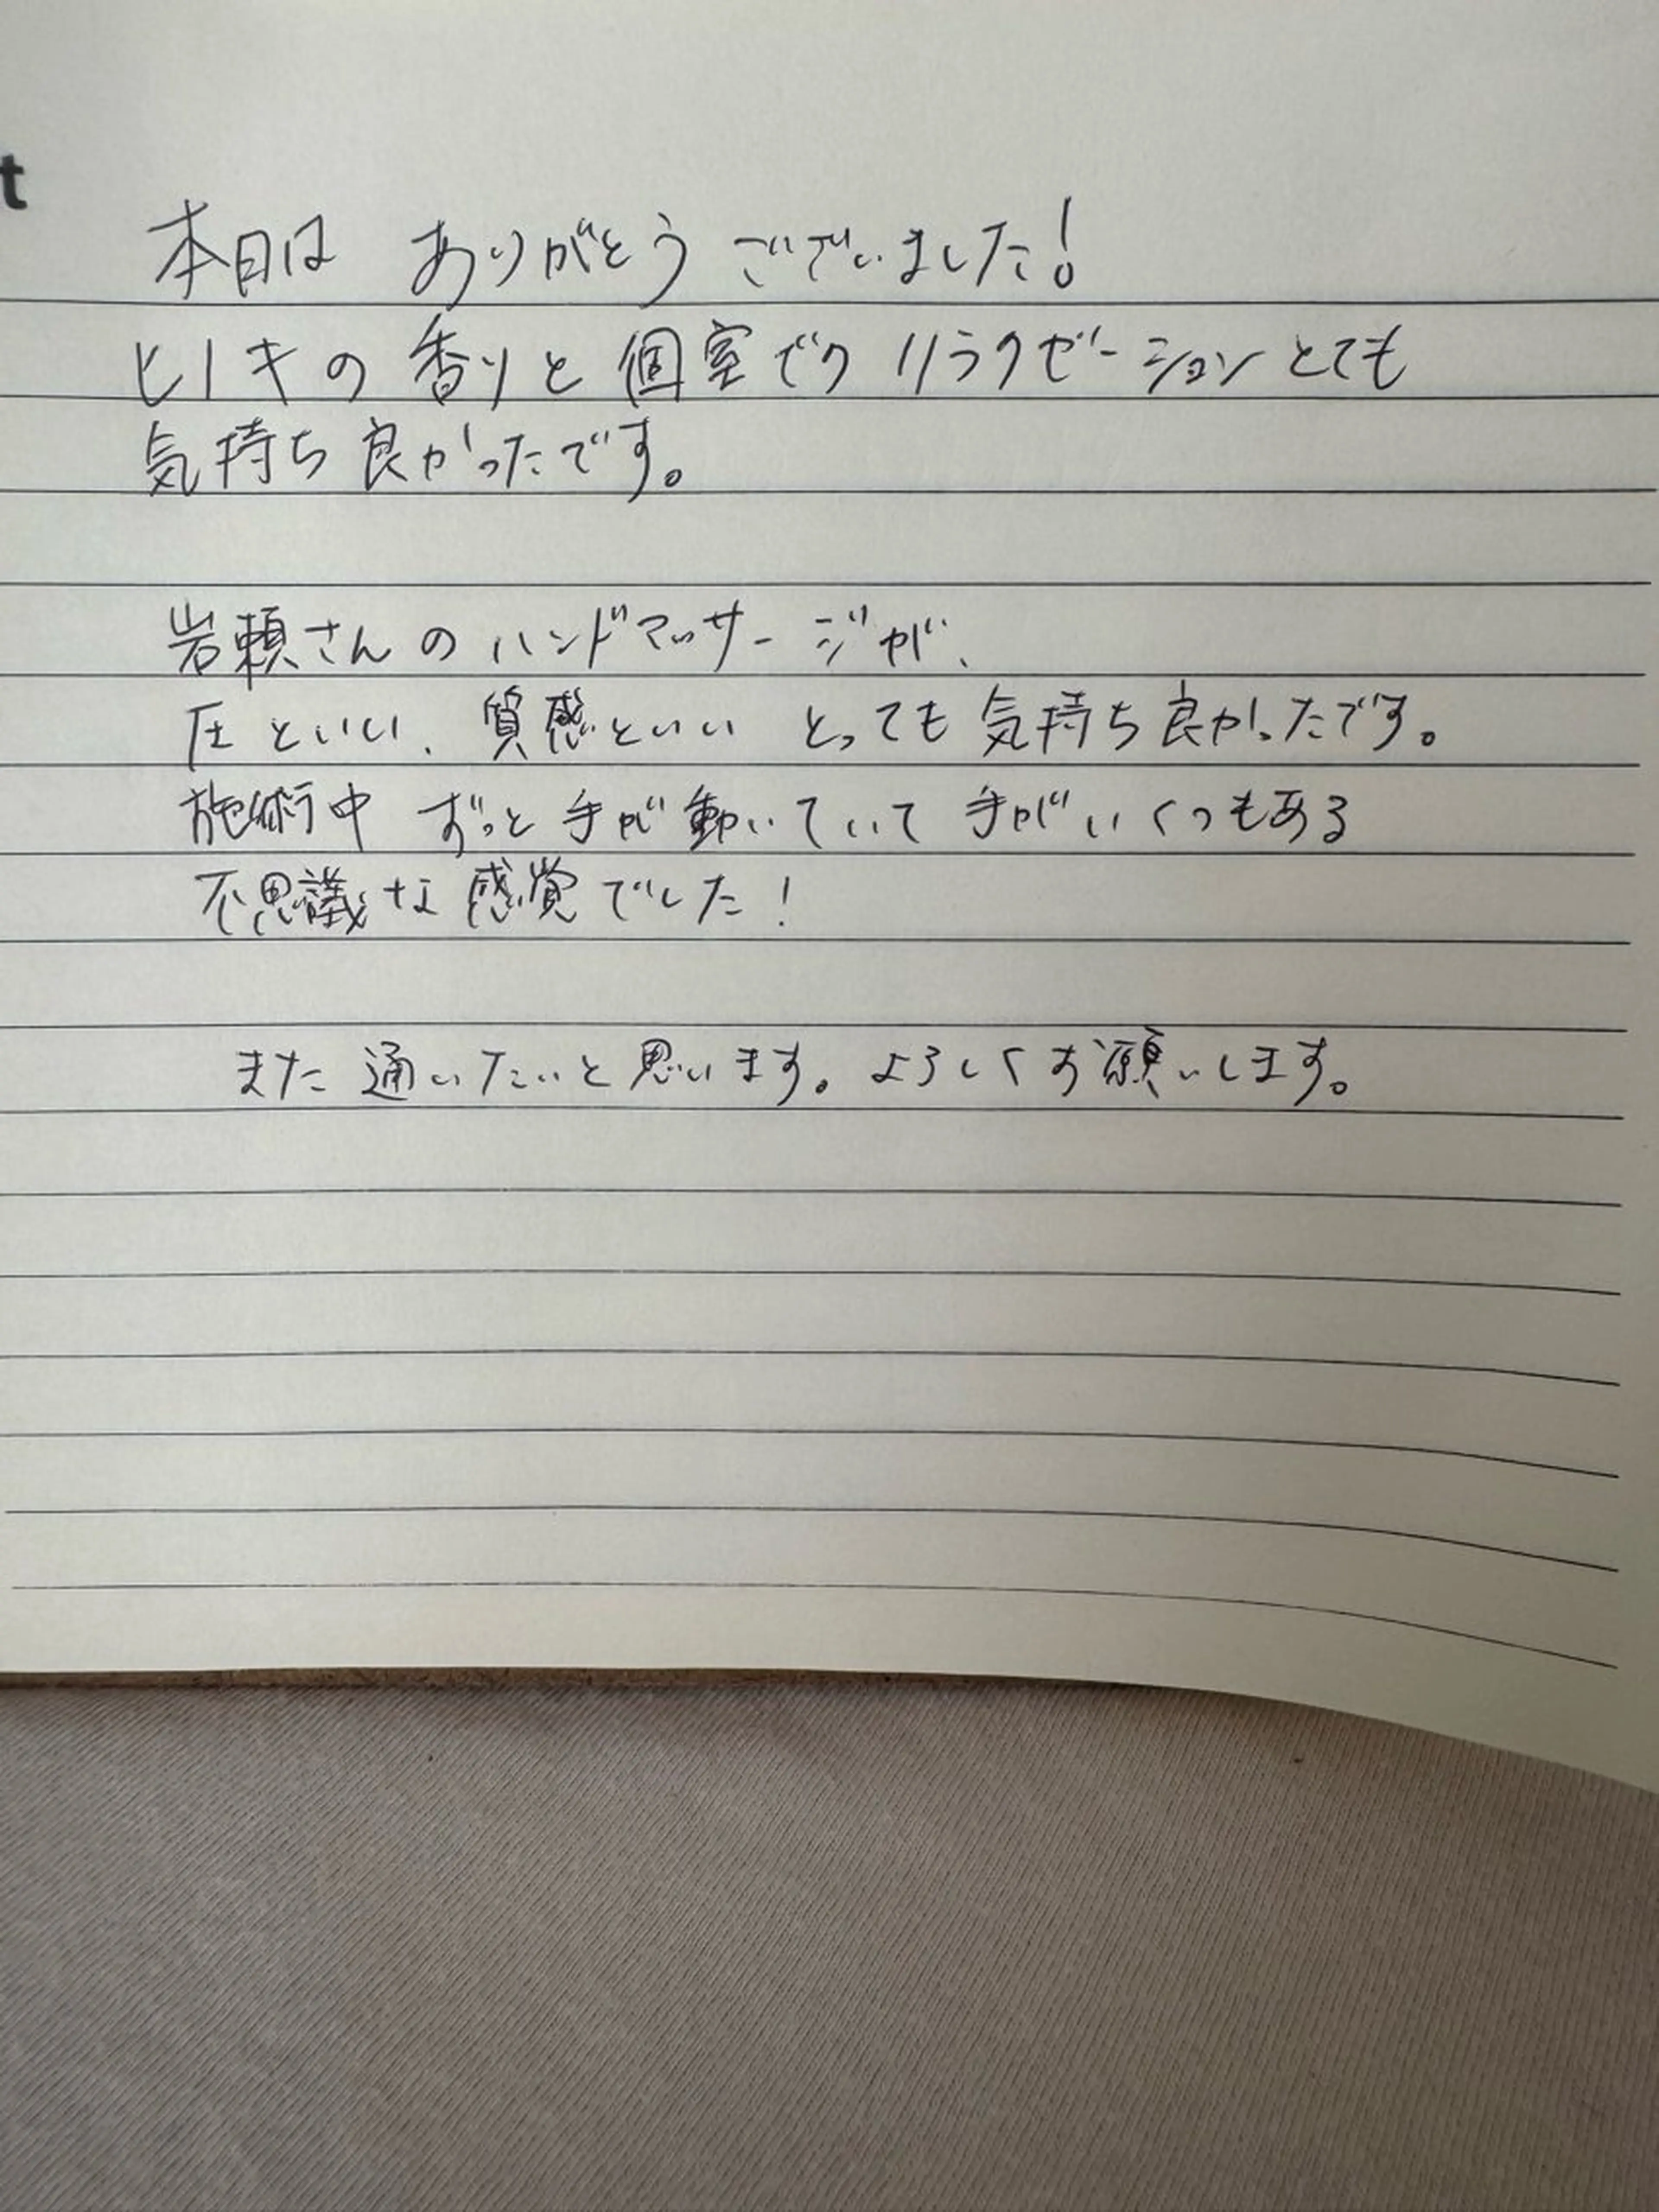 t
本日は ありがとうございました!
ヒノキの香りと個室での リラクゼーションとても
気持ち良かったです。
岩頼さんのハンドマッサージが、
圧といい、質感といい とっても気持ち良かったです。
施術中 ずっと手が動いていて 手がいくつもある
不思議な感覚でした!
また通いたいと思います。よろしくお願いします。